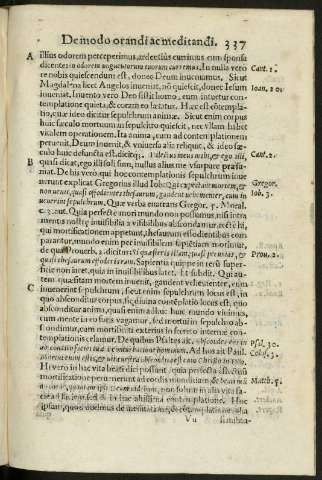 De modo orandi ac meditandi. 337
A illius odorem perceperimus, ardentius currimus cum sponsa
dicentes: in odorem unguentorum tuorum curremus. In nulla vero Cant. 1.
re nobis quiescendum est, donec Deum inveniamus. Sicut
Magdalena licet Angelos invenit, nō quiescit, donec Iesum Ioan. 20.
inveniat. Invento vero Deo sistit homo, cum intuetur con-
templatione quieta, & coram eo lætatur. Hæc est cōtempla-
tio, quæ ideo dicitur sepulchrum animæ. Sicut enim corpus
huic sæculo mortuum in sepulchro quiescit, nec ullam habet
vitalem operationem, Ita anima, cum ad contemplationem
pervenit, Deum invenit, & universa alia reliquit, & ideo sæ-
culo huic defuncta est, dicitq; dilectus meus mihi, & ego illi, Cant. 2.
B quasi dicat, ego illi soli sum, nullus alius me
nat. De his vero, qui hoc contemplationis sepulchrum inve-
nerunt explicat Gregorius illud Iob: Gregor.
non venit, quasi effodientes thesaurum, gaudent vehementer, cum in- Iob. 3.
venerint sepulchrum. Quæ verba enarrans Gregor. 5. Moral.
c. 3. aut. Quia perfecte mori mundo non possumus, nisi intra
mentis nostræ invisibilia a visibilibus abscondamur, recte hi,
qui mortificationem appetunt, thesaurum effodientibus com-
parantur, mundo enim per invisibilem sapiētiam morimur,
de qua Proverb. 2. dicitur: Si quæsieris illam quasi pecuniam, & Prov. 2.
quasi thesaurum effoderis eam. Sapientia quippe in rerū super-
ficie non iacet, quia in invisibilibus latet. Et subdit. Qui au-
tem quæsitam mortem invenit, gaudent vehementer, cum
C invenerint sepulchrum, sicut enim sepulchrum locus est, in
quo absconditur corpus, sic divina contēplatio locus est, quo
absconditur anima, quasi enim adhuc huic mundo vivimus,
cum mente in eo foris vagamur, sed mortui in sepulchro ab-
scondimur, cum mortificati exterius in secreto internæ con-
templationis celamur. De quibus Psaltes ait, abscondes eos in Psal. 30.
abscondito faciei tuæ à conturbatione hominum. Ad hos ait Paul. Colos. 3.
mortui enim estis, & vita vestra abscondita est cum Christo in Deo.
Hi vero in hac vita beati dici possunt, quia perfecta affectuum
mortificatione pervenerunt ad cordis munditiam, & beati mū- Matth. 5.
in alia vita fa-
cie ad faciem, sed & in hac altissima contemplatione. Huc
ipsam, quos ducimus de meditatione, & cōtemplatione alia
V u